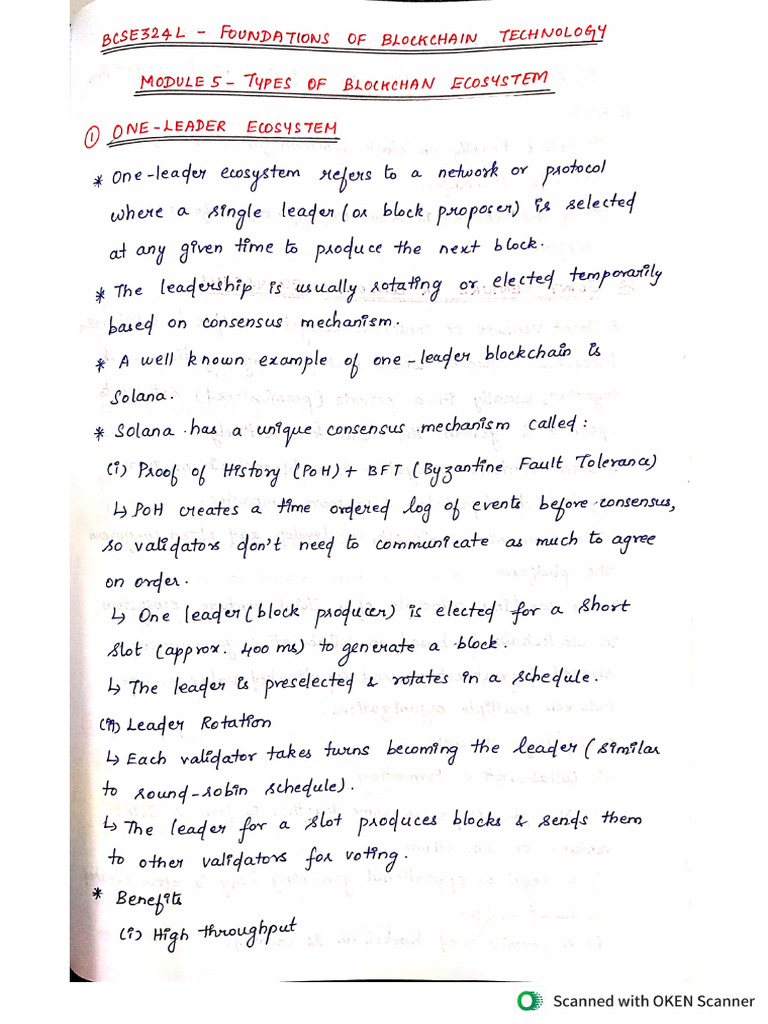 BCSE324L - FOUNDATIONS OF BLOCKCHAIN TECHNOLOGY
MODULE 5 - TYPES OF BLOCKCHAN ECOSYSTEM
① ONE-LEADER ECOSYSTEM
* One-leader ecosystem refers to a network or protocol
where a single leader (or block proposer) is selected
at any given time to produce the next block.
* The leadership is usually rotating or elected temporarily
based on consensus mechanism.
* A well known example of one-leader blockchain is
Solana.
* Solana has a unique consensus mechanism called:
(i) Proof of History (PoH) + BFT (Byzantine Fault Tolerance)
↳ PoH creates a time ordered log of events before consensus,
so validators don't need to communicate as much to agree
on order.
↳ One leader (block producer) is elected for a short
slot (approx. 400 ms) to generate a block.
↳ The leader is preselected & rotates in a schedule.
(ii) Leader Rotation
↳ Each validator takes turns becoming the leader (similar
to round-robin schedule).
↳ The leader for a slot produces blocks & sends them
to other validators for voting.
* Benefits
(i) High throughput
Scanned with OKEN Scanner